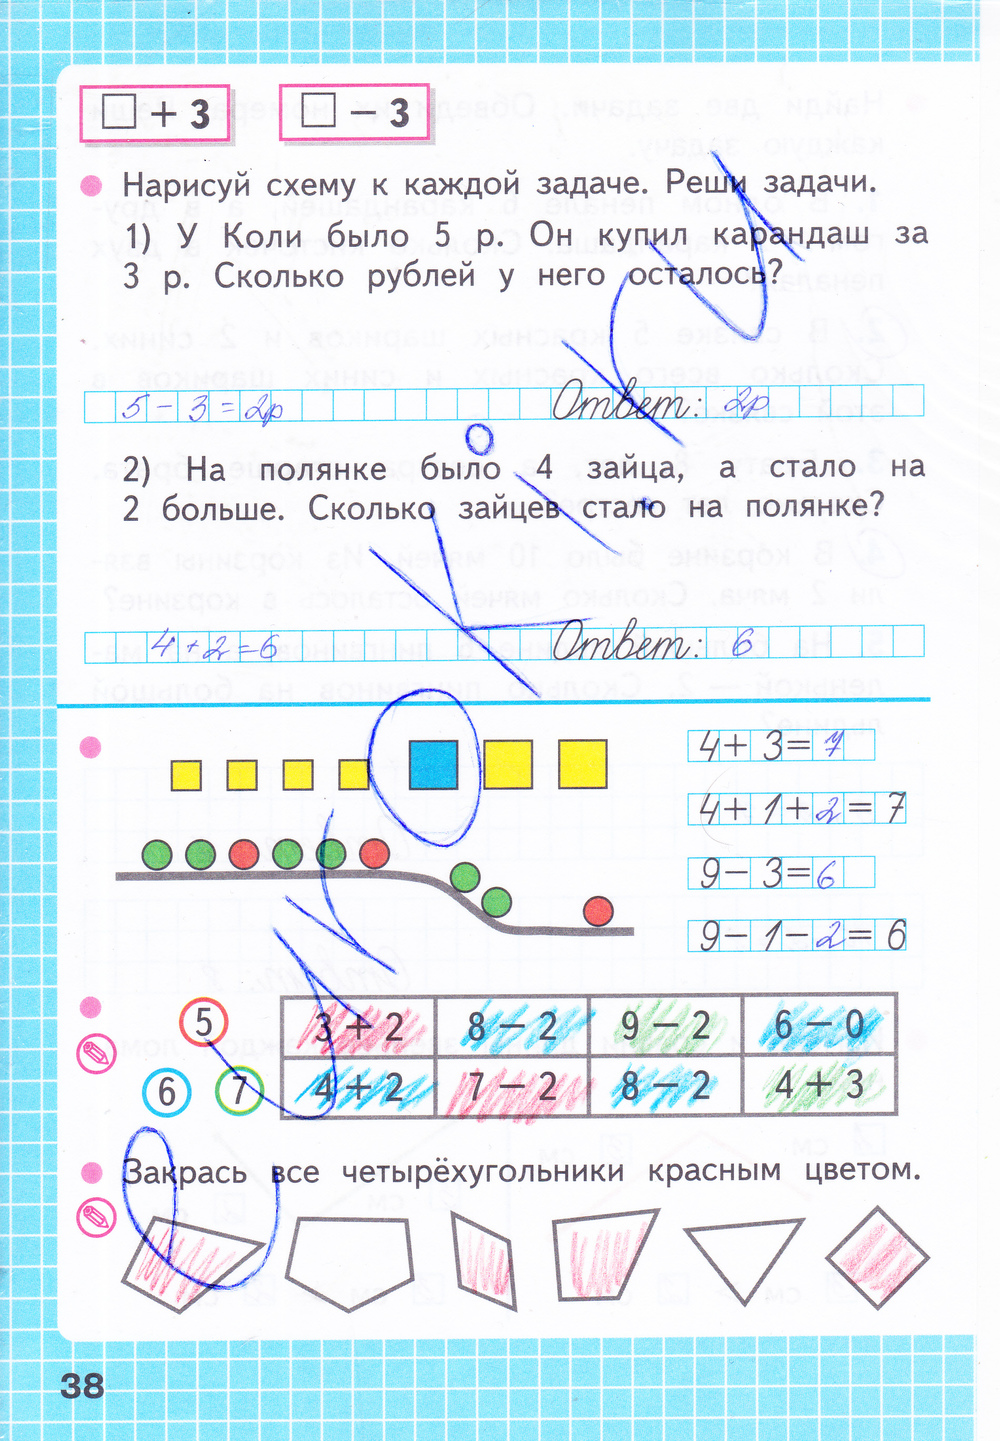 □ + 3 □ − 3
Нарисуй схему к каждой задаче. Реши задачи.
1) У Коли было 5 р. Он купил карандаш за
3 р. Сколько рублей у него осталось?
5 − 3 = 2р Ответ: 2р
2) На полянке было 4 зайца, а стало на
2 больше. Сколько зайцев стало на полянке?
4 + 2 = 6 Ответ: 6
4 + 3 = 7
4 + 1 + 2 = 7
9 − 3 = 6
9 − 1 − 2 = 6
5 3 + 2 8 − 2 9 − 2 6 − 0
6 7 4 + 2 7 − 2 8 − 2 4 + 3
Закрась все четырёхугольники красным цветом.
38